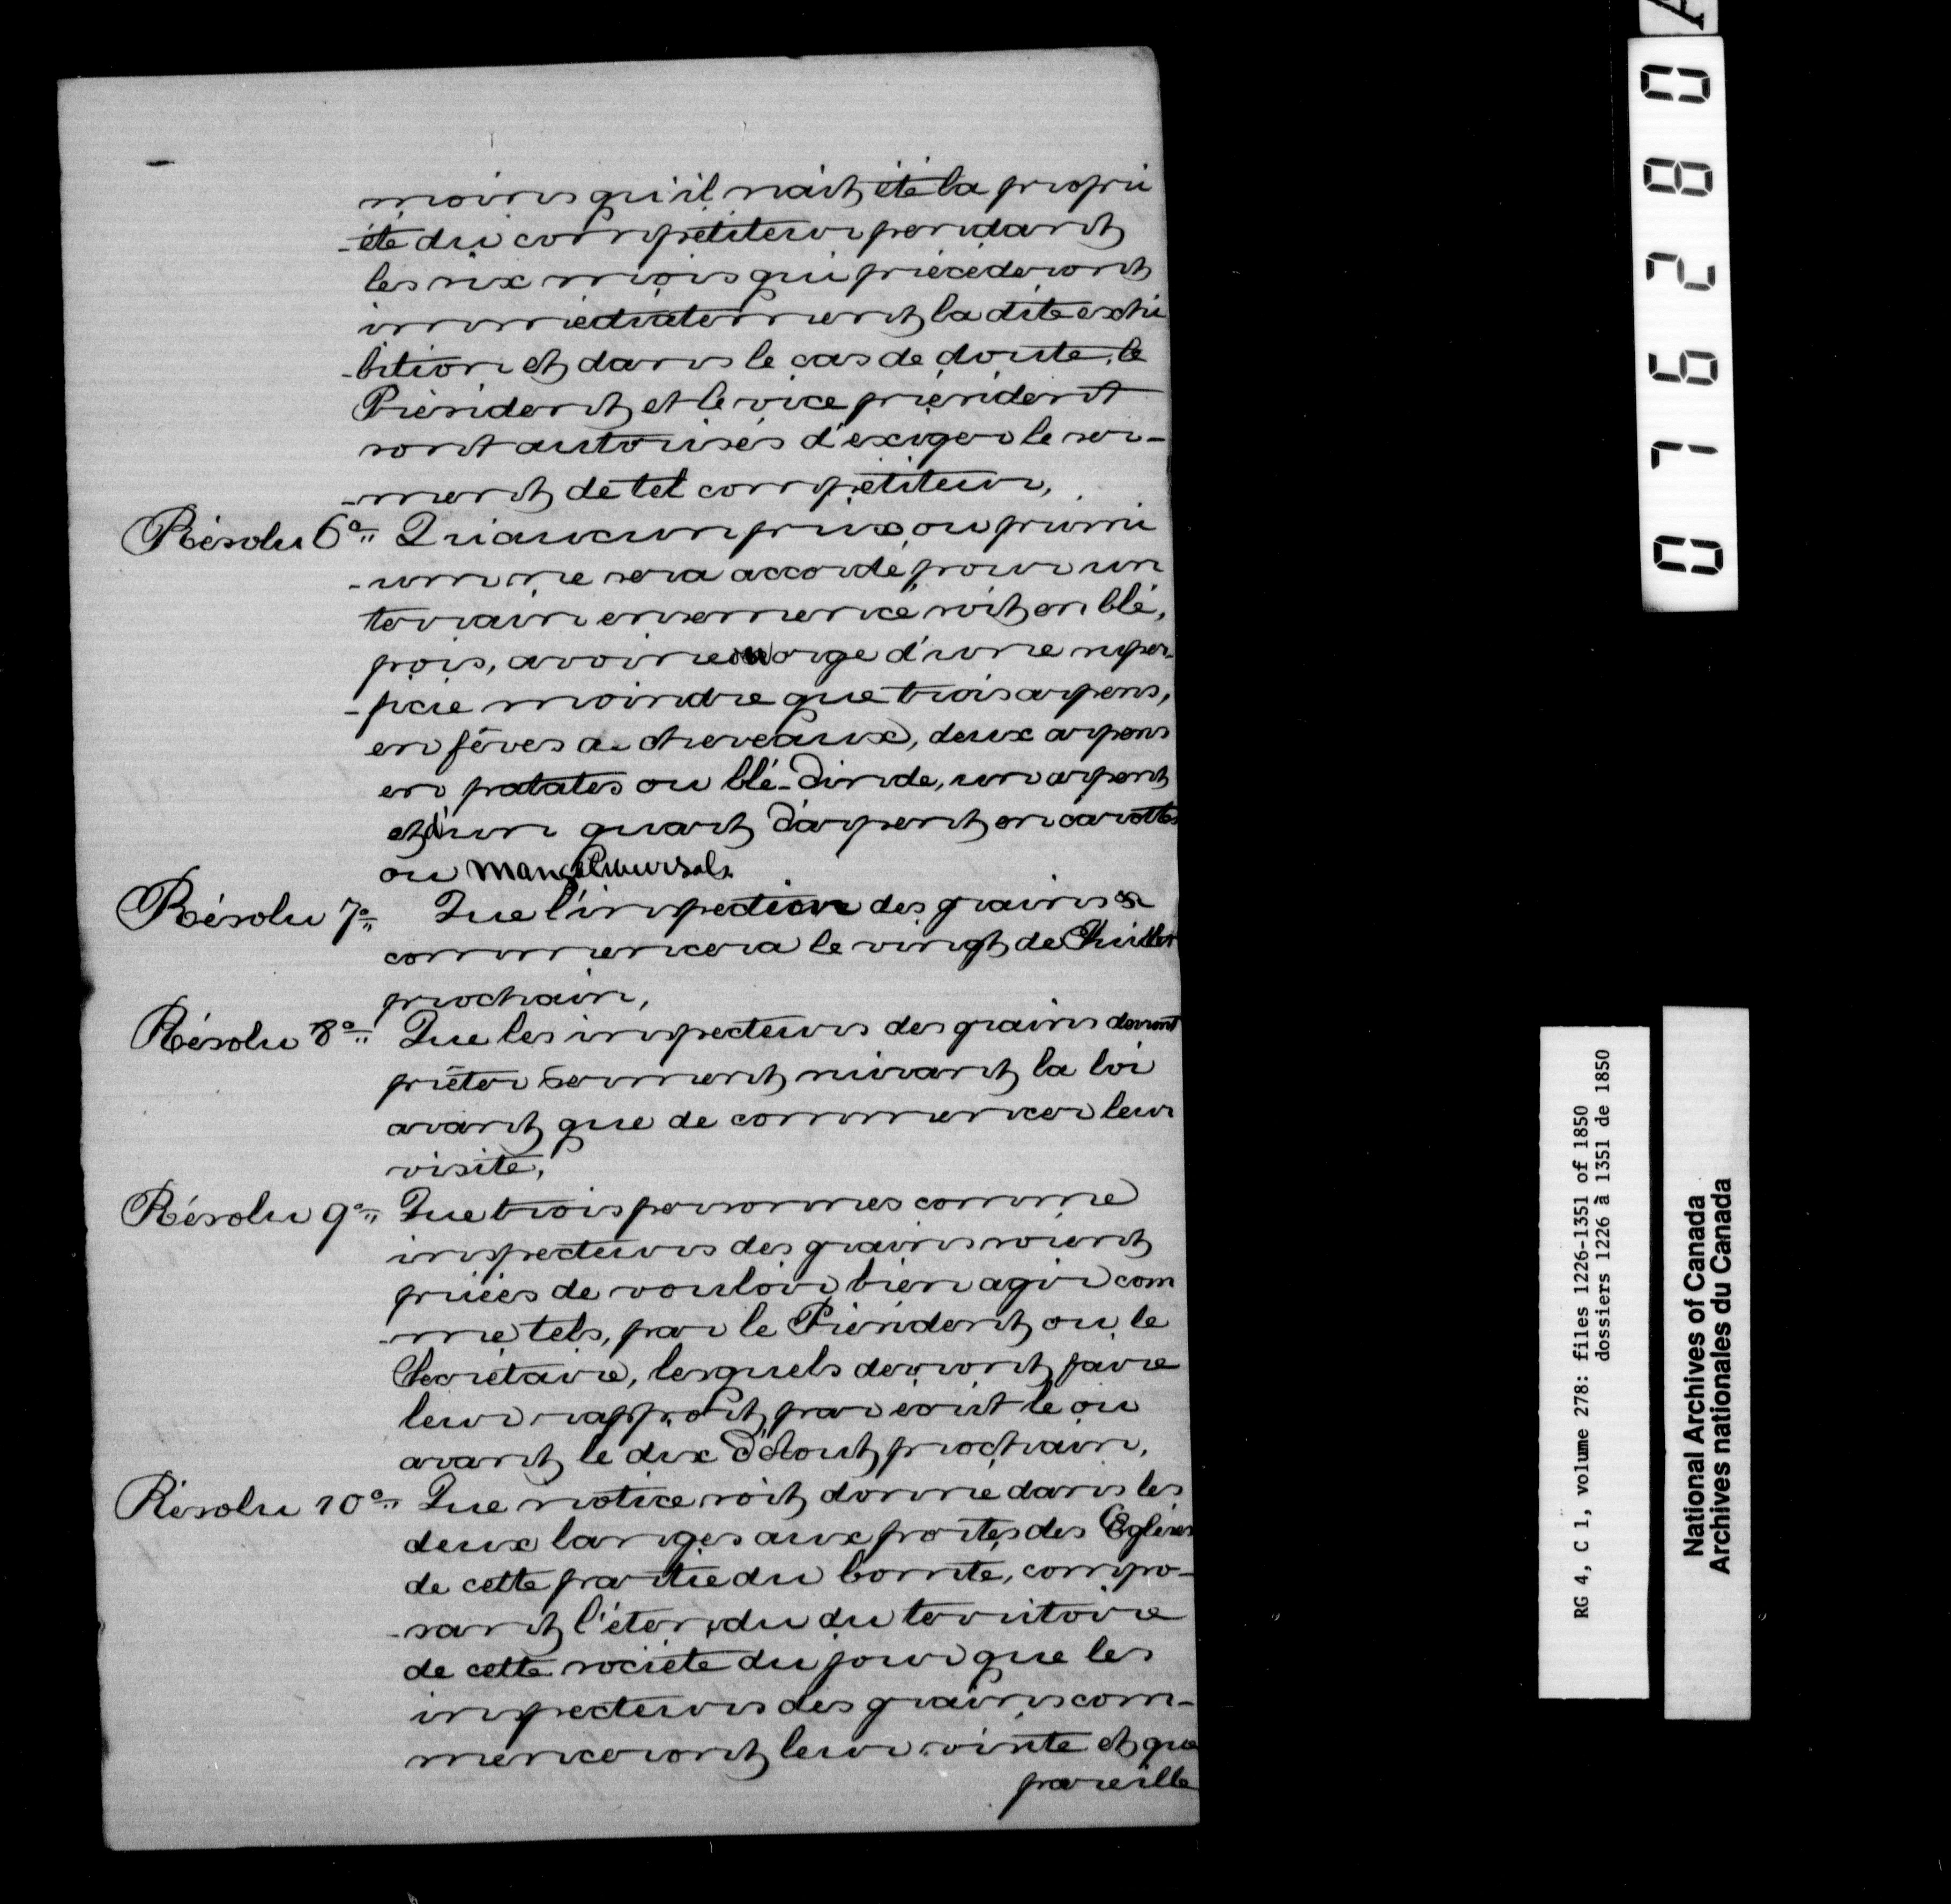 moins qu'il n'ait été la propri
-été du compétiteur pendant
les six mois qui précéderont
immédiatement la dite exhi
-bition et dans le cas de doute, le
Président et le vice président
sont autorisés d'exiger le ser-
-ment de tel compétiteur,
Résolu 6o. Qu'aucun prix ou prémi
-um ne sera accordé pour un
terrain ensemencé soit en blé,
pois, avoine ou orge d'une super-
-ficie moindre que trois arpens,
en fêves a cheveaux, deux arpens
en patates ou blé-Dinde, un arpent
et d'un quart d'arpent en carottes
ou Mangelwurzals.
Résolu 7o. Que l'inspection des grains
commencera le vingt de Juillet
prochain,
Résolu 8o. Que les inspecteurs des grains devront
prêter serment suivant la loi
avant que de commencer leur
visite,
Résolu 9o. Que trois personnes comme
inspecteurs des grains soient
priées de vouloir bien agir com
-me tels, par le Président ou le
Secrétaire, lesquels devront faire
leur rapport par écrit le ou
avant le dix d'Aout prochain,
Résolu 10o. Que notice soit donné dans les
deux langes aux portes des Eglises
de cette partie du Comté, compo-
-sant l'étendu du territoire
de cette société du jour que les
inspecteurs des grains com-
menceront leur visite et que
pareille
A
076280
RG 4, C 1, volume 278: files 1226-1351 of 1850
dossiers 1226 à 1351 de 1850
National Archives of Canada
Archives nationales du Canada